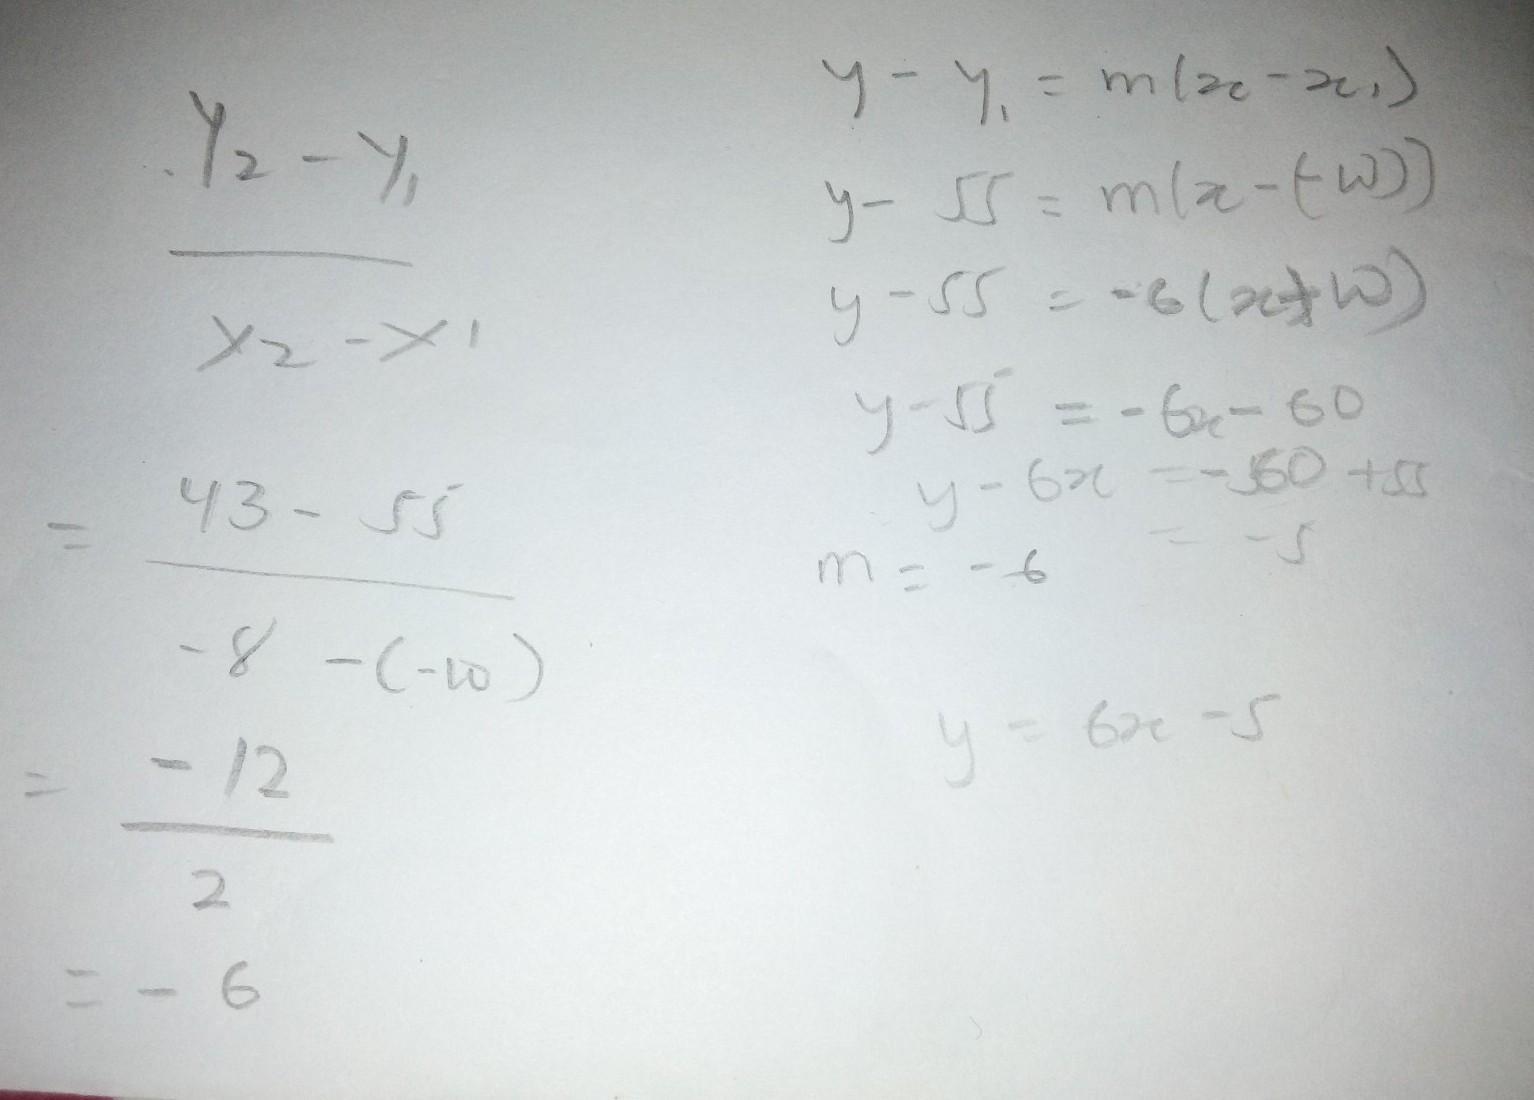 y₂ - y₁
x₂ - x1
= 43 - 55
-8 -(-10)
= -12
2
= - 6
y - y₁ = m(x - x₁)
y - 55 = m(x - (-10))
y - 55 = -6(x + 10)
y - 55 = -6x - 60
y - 6x = -60 + 55
= -5
m = -6
y = 6x - 5